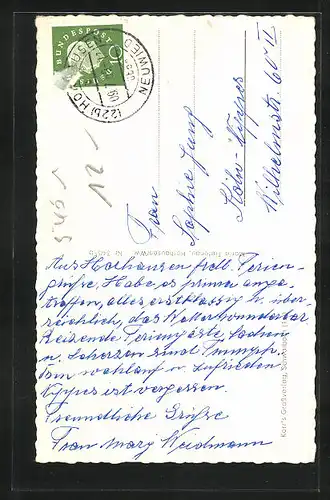 DEUTSCHE BUNDESPOST
(22b) HO
NEUWIED
60
5 45
12
Frau
Sophie Jung
Köln-Nippes
Wilhelmstr. 60 II
Aus Hochausen frdl. Ferien-
grüße. Habe es prima ange-
troffen, alles erstklassig u. über-
reichlich, das Wetter wunderbar
Reizende Feriengäste, Lachen
u. Scherzen sind Trumpf.
Bin wohlauf u. zufrieden
Nippes ist vergessen.
Freundliche Grüße
Frau Mary Weidmann